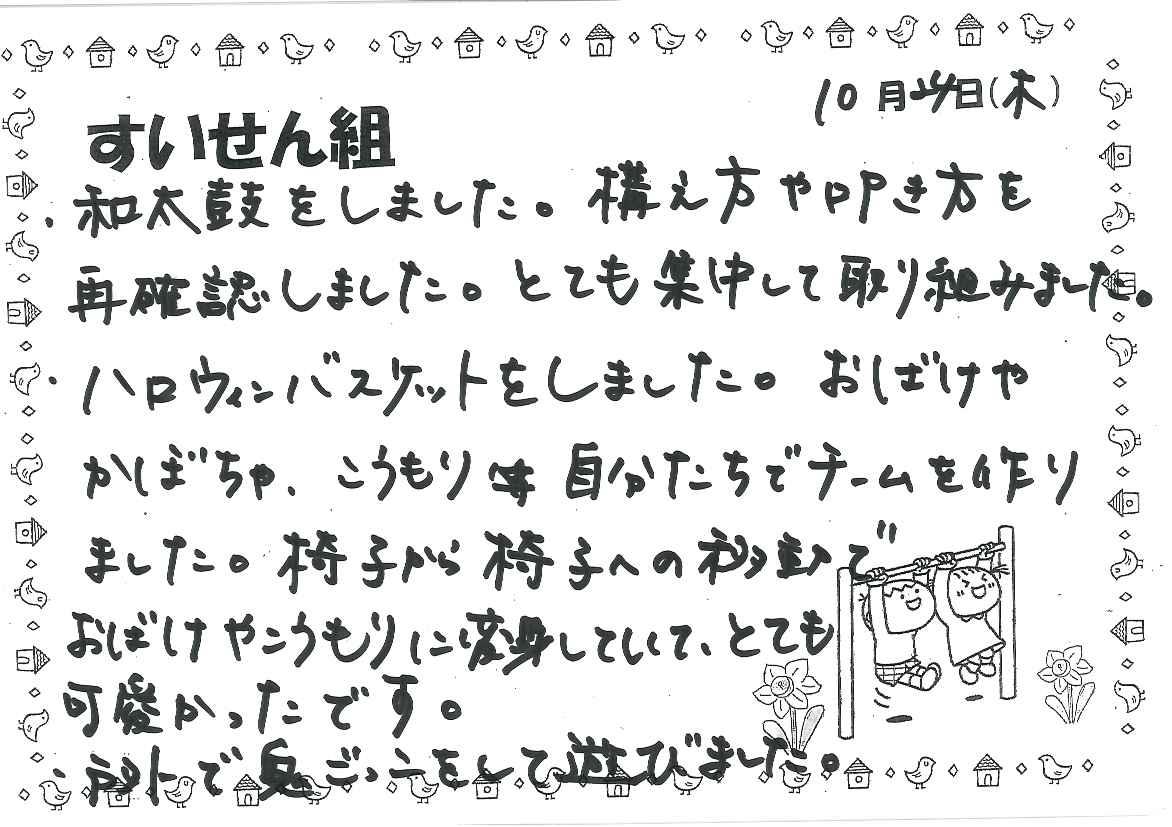 10月24日(木)
すいせん組
・和太鼓をしました。構え方や叩き方を
再確認しました。とても集中して取り組みました。
・ハロウィンバスケットをしました。おばけや
かぼちゃ、こうもりは自分たちでチームを作り
ました。椅子から椅子への移動で
おばけやこうもりに変身していて、とても
可愛かったです。
・戸外で鬼ごっこをして遊びました。